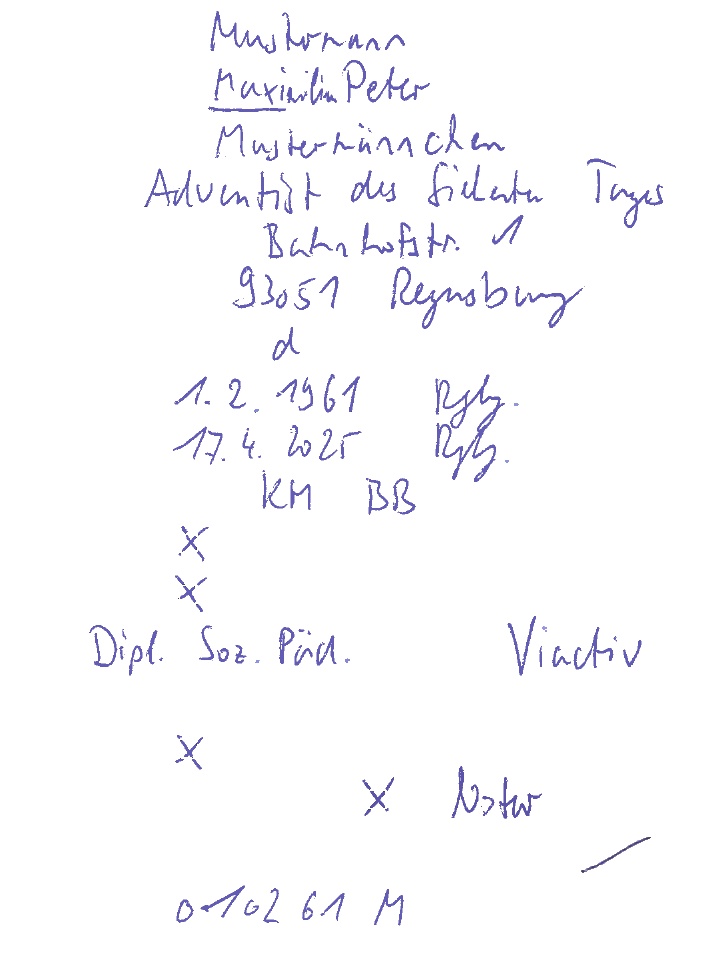 Mustermann
Maximilian Peter
Mustermännchen
Adventist des Siebenten Tages
Bahnhofstr. 1
93051 Regensburg
d
1. 2. 1961 Rgbg.
17. 4. 2025 Rgbg.
KM BB
X
X
Dipl. Soz. Päd. Viactiv
X
X Notar
010261 M